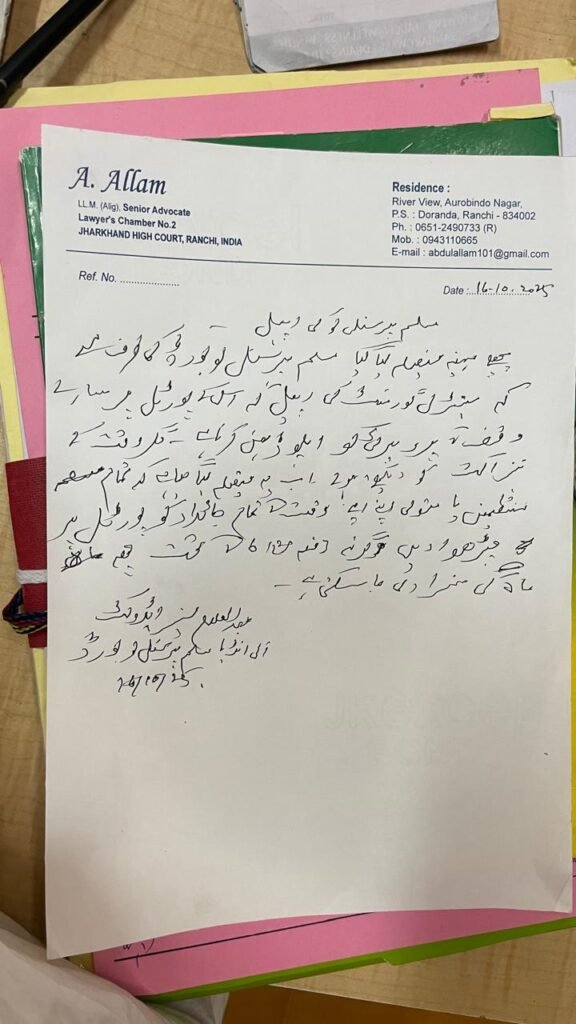 A. Allam
LL.M. (Alig), Senior Advocate
Lawyer's Chamber No.2
JHARKHAND HIGH COURT, RANCHI, INDIA
Residence :
River View, Aurobindo Nagar,
P.S. : Doranda, Ranchi - 834002
Ph. : 0651-2490733 (R)
Mob. : 0943110665
E-mail : abdulallam101@gmail.com
Ref. No. ....................
Date : 16-10.2025
مسلم پرسنل لو کی اپیل
مہینہ فیصلہ لیا گیا مسلم پرسنل لو بورڈ کی طرف سے
کہ سینٹرل گورنمنٹ کی اپیل کہ اس کے پورٹل پر سارے
وقف پروپرٹی کو اپلوڈ نہیں کرنا ہے - وقت کے
نزاکت کو دیکھتے ہوئے اب یہ فیصلہ لیا گیا ہے کہ تمام
منتظمین یا متولی اپنے اپنے وقف کا تمام جائداد کو پورٹل پر
چڑھوا دیں ورنہ دفعہ 61 کے تحت چھہ
ماہ کی سزا دی جا سکتی ہے -
عبدالعلام سینئر ایڈوکٹ
آل انڈیا مسلم پرسنل لو بورڈ
16/10/25